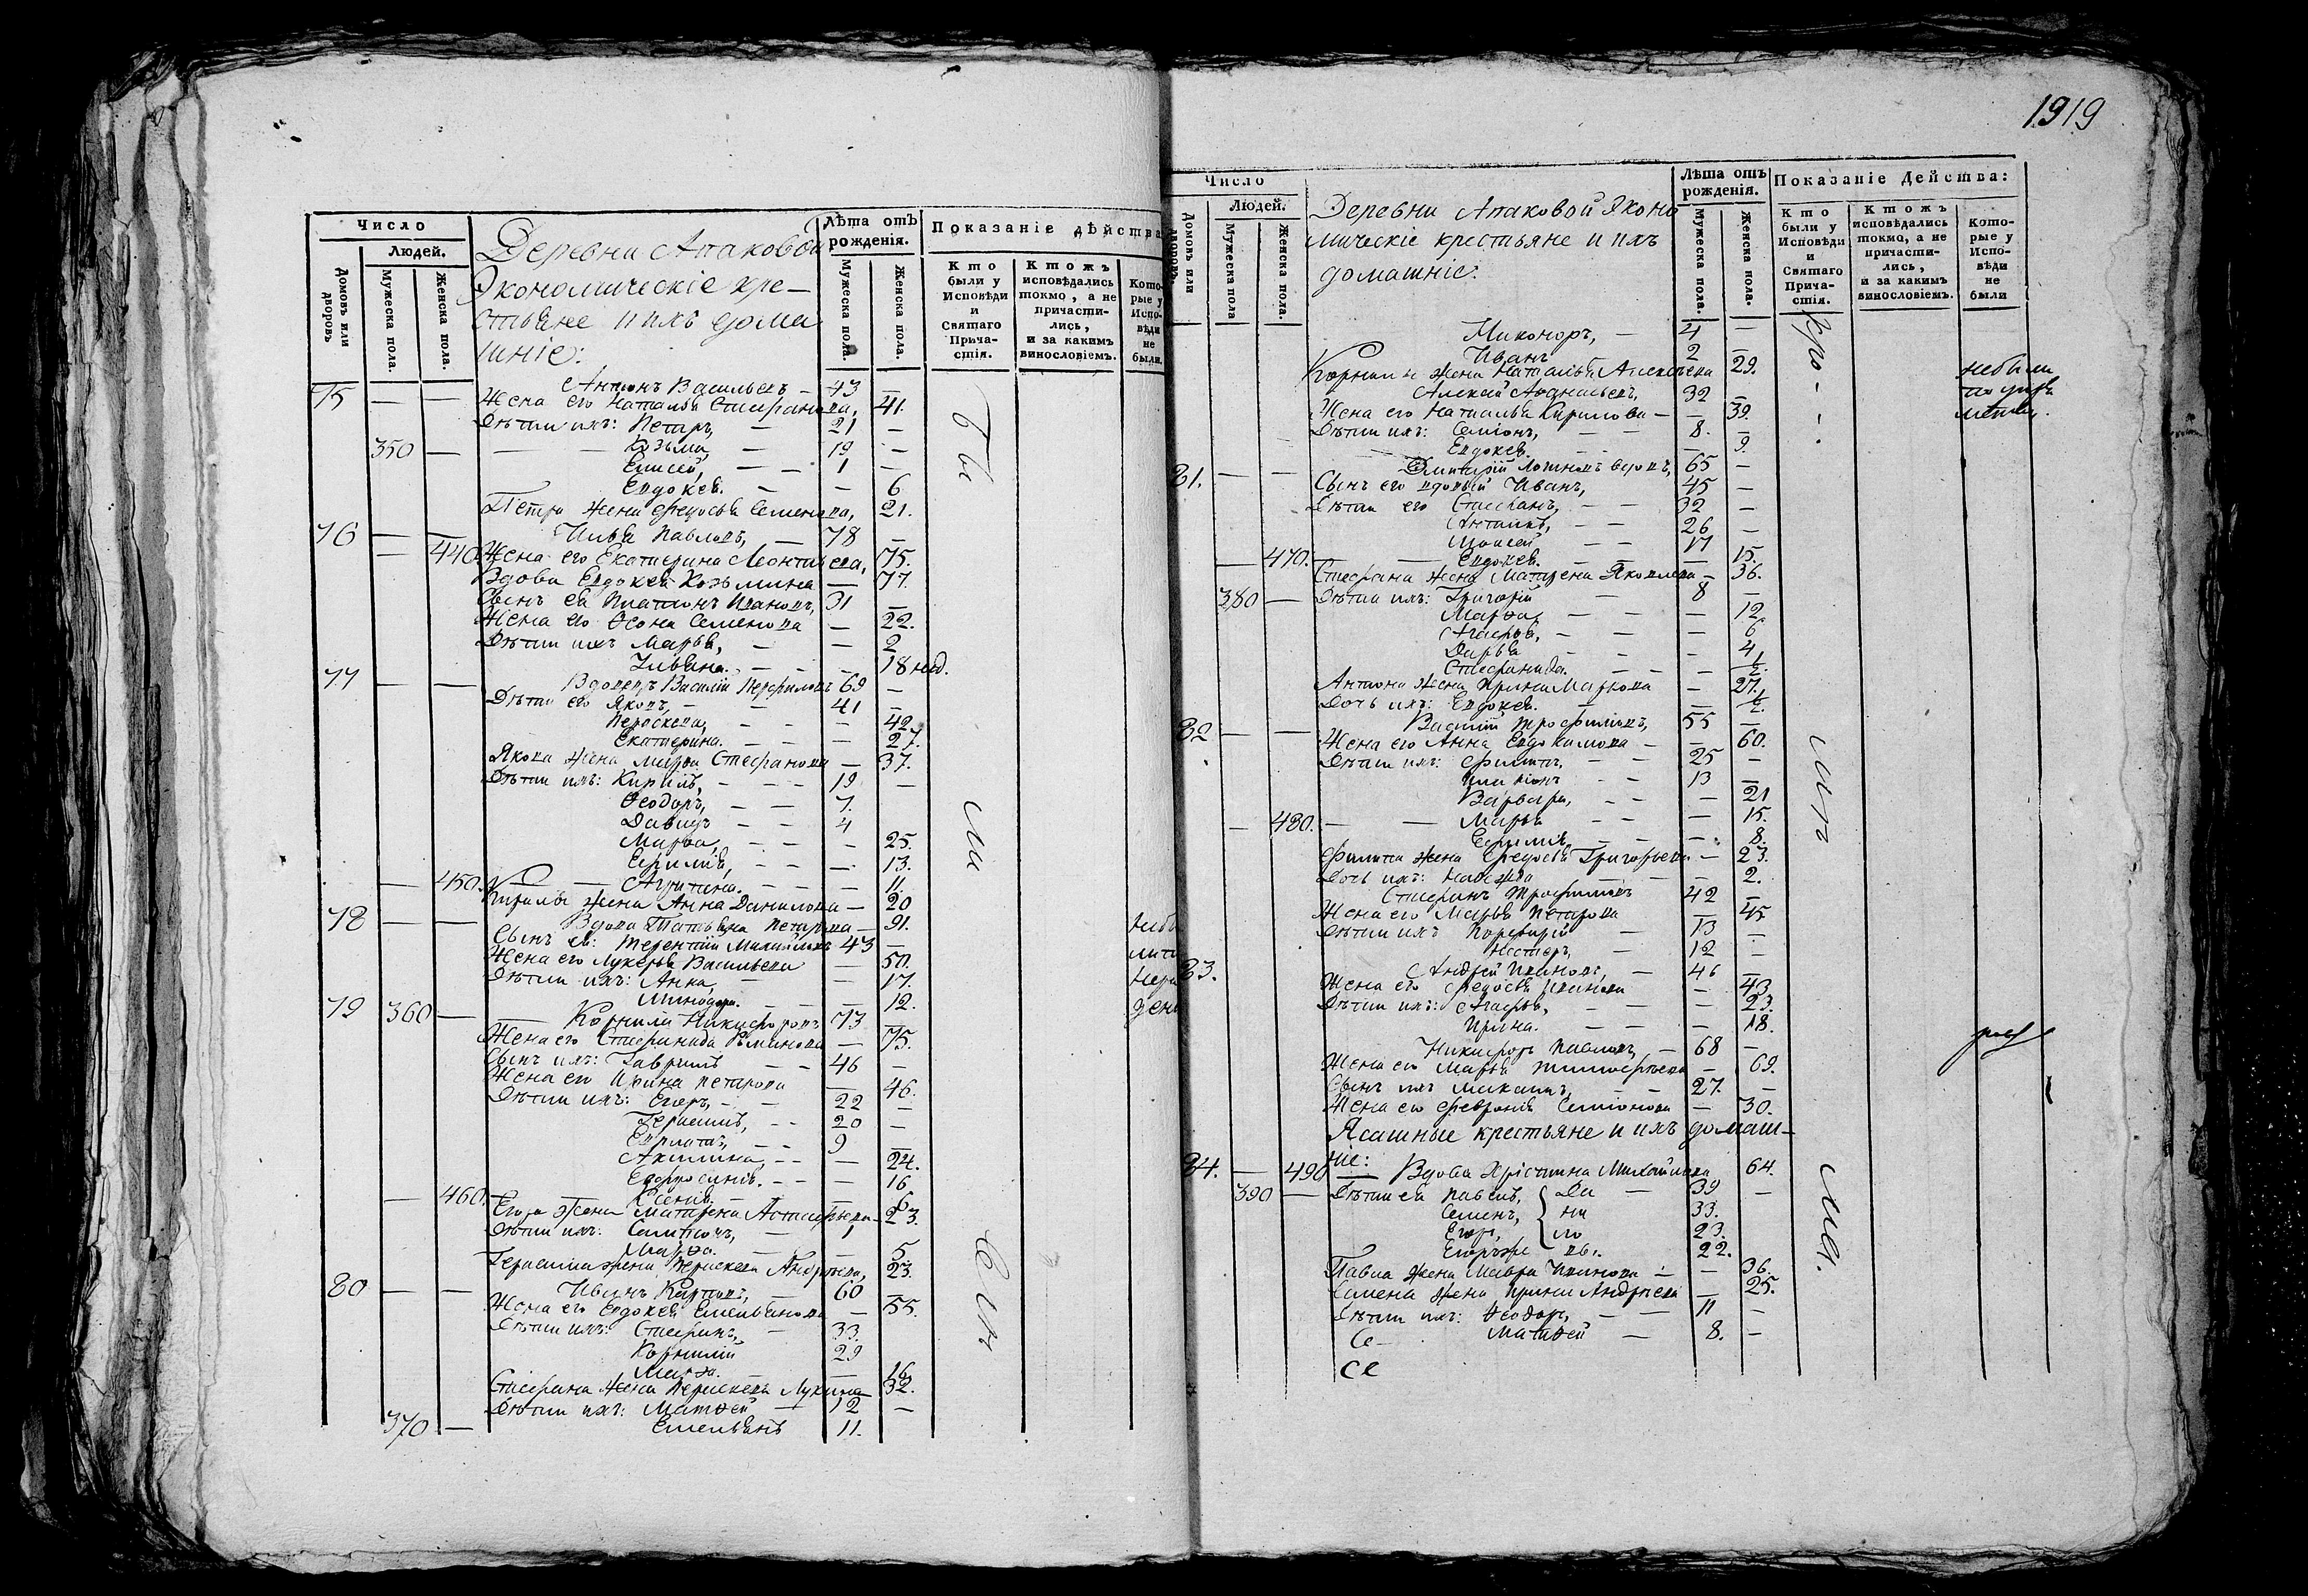 Число
Людей.
Домовъ или дворовъ
Мужеска пола.
Женска пола.
Деревни Апаковой
Экономическіе кре-
стьяне и ихъ дома
шніе:
Лѣта отъ рожденія.
Мужеска пола.
Женска пола.
Показаніе дѣйства
Кто были у Исповѣди и Святаго Прича-стія.
Ктожъ исповѣдались токмо, а не причасти-лись, и за какимъ винословіемъ.
Кото-рые у Испо-вѣди не были.
75 — — Антонъ Васильевъ — 43 —
Жена его Наталья Стефанова, 41.
Дѣти ихъ: Петръ, — 21 —
350 — Козьма, — 19 —
Елисей, — 1 —
Евдокея. — — 6
Петра жена Федосья Семенова, 21.
76 — — Илья Павловъ, — 78 —
— 440. Жена его Екатерина Леонтьева, 75.
Вдова Евдокея Козьмина — 77.
Сынъ ея Платонъ Ивановъ, 31 —
Жена его Ѳеона Семенова — 22.
Дѣти ихъ Марья, — — 2
Ульяна. — — 18 нед.
77 — — Вдовецъ Василій Перфиловъ 69 —
Дѣти его Яковъ, — 41 —
Параскева, — — 42.
Екатерина. — — 27.
Якова жена Марѳа Стефанова — 37.
Дѣти ихъ: Кирилъ, — 19 —
Ѳеодоръ, — 7.
Давидъ — 4
Марѳа, — — 25.
Ефимія, — — 13.
— 450. — Агрипина. — — 11.
Кирилы жена Анна Данилова — 20
78 — — Вдова Татьяна Петрова — 91.
Сынъ ея: Терентій Михайловъ 43 —
Жена его Лукерья Васильева — 50.
Дѣти ихъ: Анна, — — 17.
Минодора. — — 12.
79 360 — Корнилій Никифоровъ 73 —
Жена его Стефанида Романова — 75.
Сынъ ихъ: Гаврилъ — 46 —
Жена его Ирина Петрова — 46.
Дѣти ихъ: Егоръ, — 22 —
Герасимъ, — 20 —
Евплатъ, — 9
Акилина, — — 24.
Ефросинія. — — 16
— 460. — Ксенія. — — 6
Егора жена Матрена Астафьева — 23.
Дѣти ихъ: Самсонъ, — 1
Марѳа. — — 5.
Герасима жена Параскева Андреева, 23.
80 — — Иванъ Карповъ, — 60 —
Жена его Евдокея Емельянова — 55.
Дѣти ихъ: Стефанъ, — 33.
Корнилій 29
Марѳа. — 16
Стефана жена Параскева Лукина 32.
Дѣти ихъ: Матѳей — 12 —
370 — Емельянъ 11.
Бы
ли
Всѣ
1919
Число
Людей.
Домовъ или дворовъ
Мужеска пола
Женска пола.
Деревни Апаковой Эконо
мическіе крестьяне и ихъ
домашніе:
Лѣта отъ рожденія.
Мужеска пола.
Женска пола.
Показаніе Дейсства:
Кто были у Исповѣди и Святаго Прича-стія.
Ктожъ исповѣдались токмо, а не причасти-лись, и за какимъ винословіемъ.
Кото-рые у Испо-вѣди не были
Миконоръ, — 4 —
Иванъ 2 —
Корнилы жена Наталья Алексѣева 29.
небыли
Алексей Аѳанасьевъ, 32 —
Жена его Наталья Кирилова — 39.
Дѣти ихъ: Семіонъ, — 8. —
Евдокея. — 9.
81. — — Дмитрій Логиновъ вдовъ, 65 —
Сынъ его вдовый Иванъ, 45 —
Дѣти его Стефанъ, — 32 —
Антонъ, — 26 —
Моисей — 17
— 470. — Евдокея. — — 15.
Стефана жена Матрена Яковлева — 36.
380 — Дѣти ихъ: Григорій — 8 —
Марѳа, — — 12.
Агафья, — — 6
Дарья — — 4
Стефанида. — — ½.
Антона жена Ирина Маркова — 27.
Дочь ихъ: Евдокея. — ½.
82 — — Василій Трофимовъ, 55 —
Жена его Анна Евдокимова — 60.
Дѣти ихъ: Филипъ, — 25 —
Иларіонъ — 13 —
Варвара, — — 21
— 480. — Марья — — 15.
Ефимія, — — 8.
Филипа жена Федосья Григорьева — 23.
Дочь ихъ: Надежда — 2.
Стефанъ Трофимовъ 42 —
Жена его Марья Петрова — 45.
Дѣти ихъ Порфирій — 13 —
Несторъ, — 12 —
83. Андрей Ивановъ, — 46 —
Жена его Федосья Иванова — 43.
Дѣти ихъ: Агафья, — — 23.
Ирина. — — 18.
Никифоръ Павловъ, — 68 —
Жена его Марья Тимофеева — 69.
Сынъ ихъ Михаилъ, — 27. —
Жена его Февронія Семіонова — 30.
Ясашные крестьяне и ихъ домаш-
ніе:
84. — 490 — Вдова Христина Михайлова 64.
390 — Дѣти ея Павелъ, { Да — 39 —
Семенъ, { ни 33.
Егоръ, { ло 23.
Егоръ же вы. 22.
Павла жена Мавра Иванова — 36.
Семена жена Ирина Андреева — 25.
Дѣти ихъ: Ѳеодоръ, — 11 —
Се— Матѳей — 8. —
Се